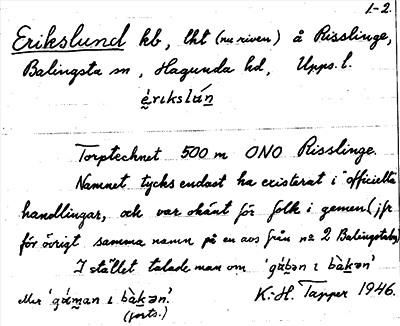 1.-2.
Erikslund kb, lht (nu riven) å Risslinge,
Balingsta sn, Hagunda hd, Upps. l.
é̱rikslán̠
Torptechnet 500 m ONO Risslinge.
Namnet tycks endast ha existerat i "officiella
handlingar, och var okänt för folk i gemen (jfr
för övrigt samma namn på en avs från no 2 Balingstaby)
I stället talade man om 'gúb̠ən ɩ bàk̠ən'
eller 'gúm̠an ɩ bàk̠ən'. K.-H. Tapper 1946.
(forts.)